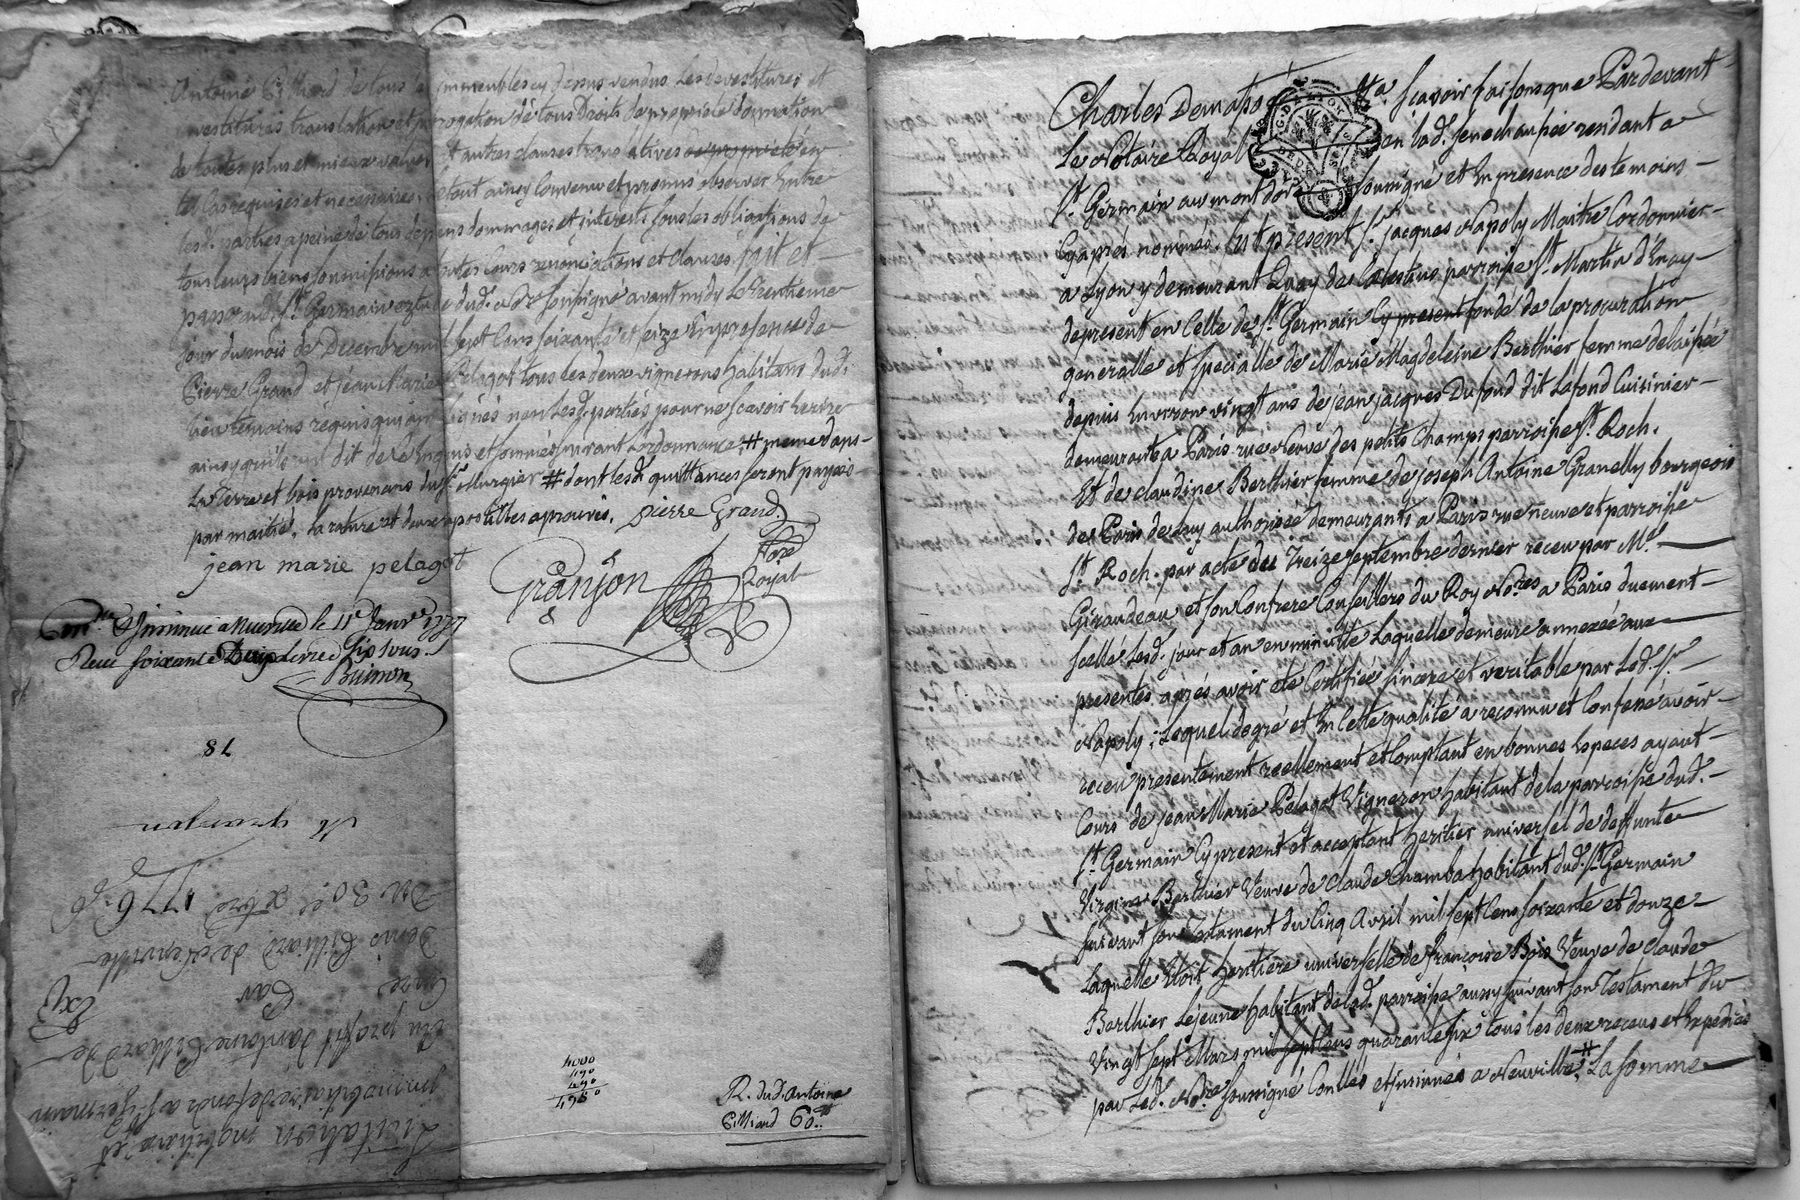 Antoine Billiard de tous les immeubles cy dessus vendus les devestitures et
investitures translation et prorogation de tous Droits de proprieté donnation
de toutes plus et mieux values et autres clauses translatives de propriete en
tel cas requises et necessaires, le tout ainsy convenu et promis observer Entre
lesd. parties a peine de tous depens dommages et interests sous les obligations de
tous leurs biens soumissions a toutes Cours renonciations et clauses. fait et
passé aud. St. Germain etude dud. no.re soussigné avant midy le Trentieme
jour du mois de Decembre mil sept Cens soixante et seize En presence de
Pierre Grand et Jean Marie Pelagot tous les deux vignerons habitans dud.
lieu temoins requis qui ont signés non lesd. parties pour ne sçavoir Ecrire
ainsy qu'ils ont dit de ce Enquis et sommés suivant Lordonnance, # meme dans
la Terre et bois provenans dud. Sr. Murgier # dont lesd. quittances seront payées
par moitié, la rature et deux apostilles aprouvés. pierre Grand
jean marie pelagot
Granjon
No.re
Royal
Con.lle & Insinué a Neuville le 11e Janv. 1777
Reçu soixante Deux livres six sous.
Buisson
81
M. granjon
Du 30e xbre 1776.
Denis Billiard de Neuville
Cure Par
Au profit d'antoine Billiard de
Exp
immobiliaire de fonds a St. Germain
Licitation mobiliaire et
4000
490
490
4980
R. dud. Antoine
Billiard 60.
Charles Demasso &a. sçavoir faisons que Pardevant
Le Notaire Royal en lad. senechaussée rendant a
St. Germain au mont dor soussigné et En presence des temoins
Cy après nommés. fut present Sr. Jacques Napoly Maitre Cordonnier
a Lyon y demeurant Quay des Celestins parroisse St. Martin d'Enay
de present en Celle de St. Germain Cy present fondé de la procuration
generalle et specialle de Marie Magdeleine Berthier femme delaissée
depuis Environ vingt ans de Jean Jacques Dufond dit Lafond Cuisinier
demeurante a Paris rue Neuve des petits Champs parroisse St. Roch.
Et de claudine Berthier femme de Joseph Antoine Granelly bourgeois
de Paris de Luy authorisée demeurants a Paris rue neuve et parroisse
St. Roch. par acte du Treize septembre dernier receu par Mes.
Giraudeau et son Confrere Conseillers du Roy No.res a Paris duement
scellé lesd. jour et an en minutte Laquelle demeure annexée aux
presentes après avoir eté Certifiée sincere et veritable par Led. Sr.
Napoly ; Lequel de gré et En cette qualité a reconnu et confessé avoir
receu presentement reellement et comptant en bonnes Especes ayant
Cours de Jean Marie Pelagot Vigneron habitant de la parroisse dud.
St. Germain Cy present et acceptant heritier universel de deffunte
Virginie Berthier Veuve de Claude Chamba habitant dud. St. Germain
suivant son Testament du Cinq Avril mil sept Cens soixante et douze
Laquelle Etoit heritiere universelle de françoise Bois Veuve de Claude
Berthier Lejeune habitant de lad. parroisse aussy suivant son Testament du
Vingt sept Mars mil sept cens quarante six tous les deux receus et Expediés
par Led. No.re soussigné Con.llés et insinués a Neuville, # La somme